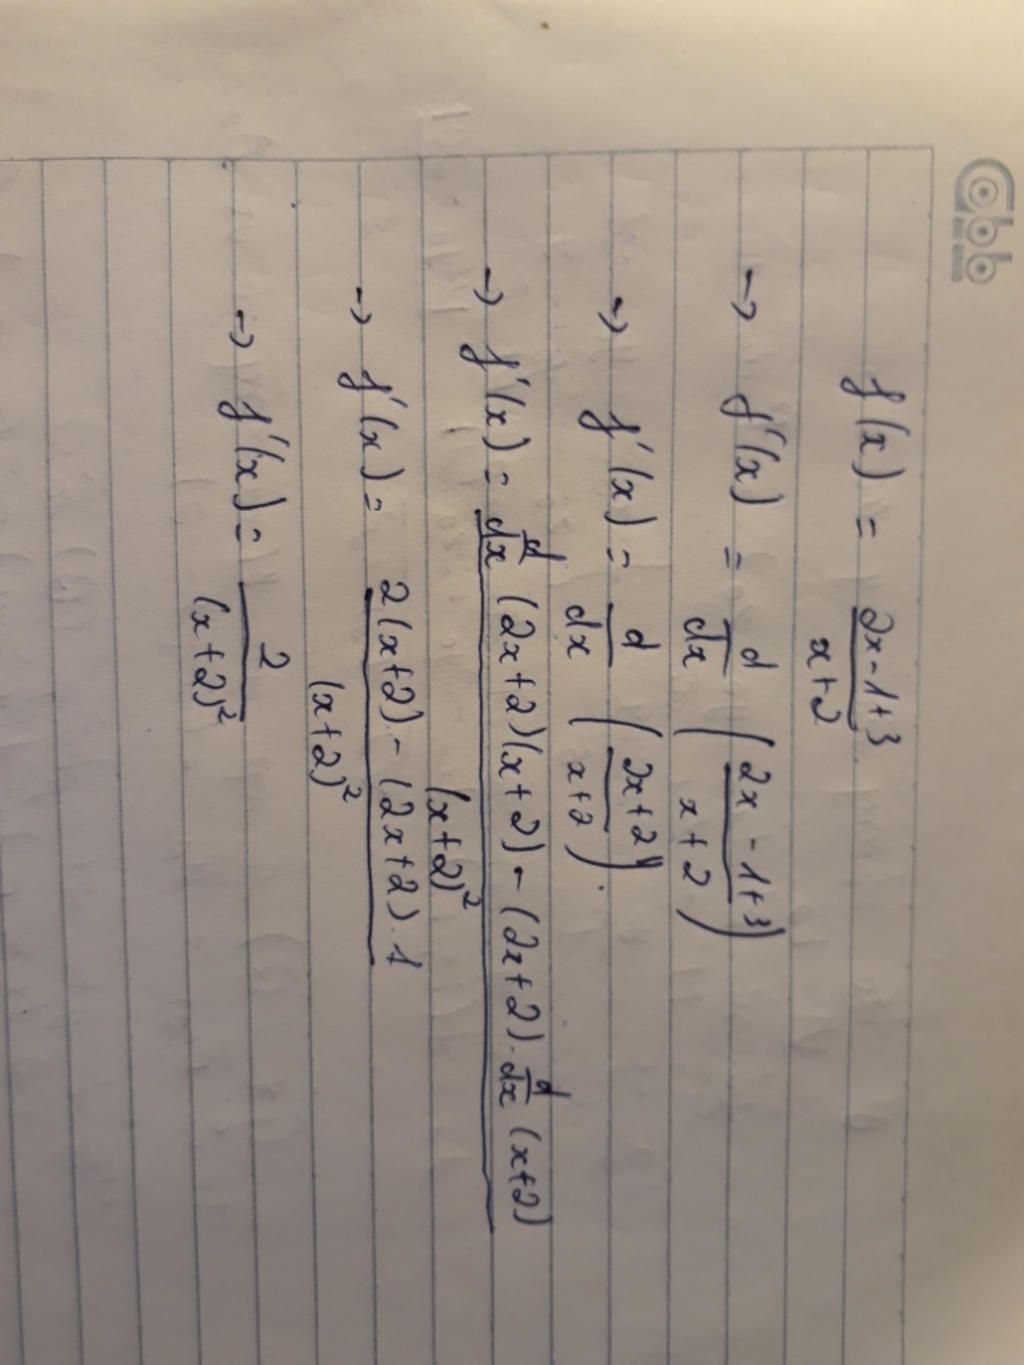 f(x) = (2x-1+3)/(x+2)
→ f'(x) = d/dx ((2x-1+3)/(x+2))
→ f'(x) = d/dx ((2x+2)/(x+2)).
→ f'(x) = (d/dx (2x+2)(x+2) - (2x+2). d/dx (x+2))/(x+2)²
→ f'(x) = (2(x+2) - (2x+2).1)/(x+2)²
→ f'(x) = 2/(x+2)²